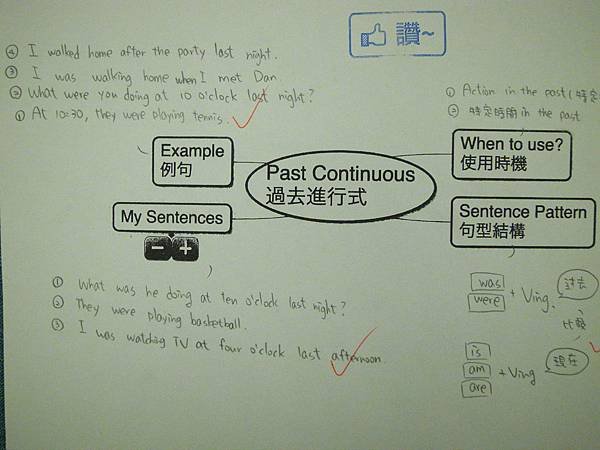 讚~
④ I walked home after the party last night.
③ I was walking home when I met Dan.
② What were you doing at 10 o'clock last night?
① At 10:30, they were playing tennis.
① Action in the past (特定
② 特定時間 in the past
Example
例句
My Sentences
Past Continuous
過去進行式
When to use?
使用時機
Sentence Pattern
句型結構
① What was he doing at ten o'clock last night?
② They were playing basketball.
③ I was watching TV at four o'clock last afternoon.
was
were
+ Ving.
過去
比較
is
am
are
+ Ving
現在